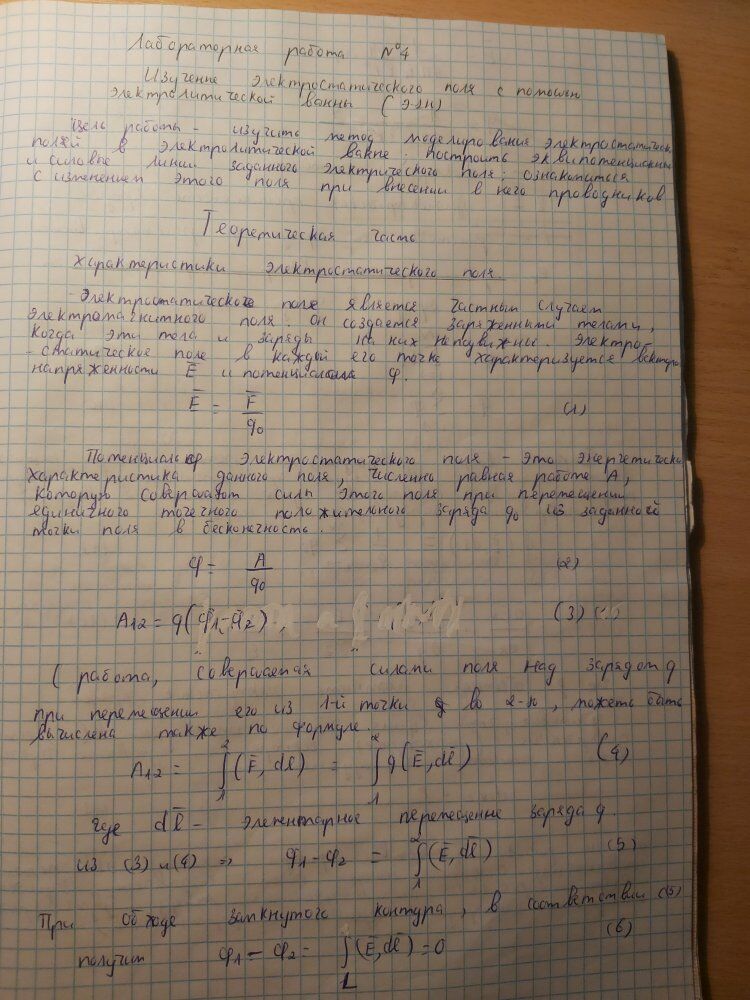 Лабораторная работа №4
Изучение электростатического поля с помощью
электролитической ванны (ЭЛН)
Цель работы - изучить метод моделирования электростатическ
полей в электролитической ванне. построить эквипотенциальн
и силовые линии заданного электрического поля; ознакомиться
с изменением этого поля при внесении в него проводников
Теоретическая часть
Характеристики электростатического поля
Электростатическое поле является частным случаем
электромагнитного поля. Он создается заряженными телами,
когда эти тела и заряды на них неподвижны. Электро-
- статическое поле в каждый его точке характеризуется вектором
напряженности E̅ и потенциалом φ.
E̅ = F̅/q₀ (1)
Потенциал φ электростатического поля - это энергетическ
характеристика данного поля, численно равная работе A,
которую совершают силы этого поля при перемещении
единичного точечного положительного заряда q₀ из заданной
точки поля в бесконечность.
φ = A/q₀ (2)
A₁₂ = q(φ₁-φ₂), (3)
( работа, совершаемая силами поля над зарядом q
при перемещении его из 1-й точки во 2-ю, может быть
вычислена также по формуле
A₁₂ = ∫₁² (E̅, dl) = ∫₁² q(E̅, dl̅) (4)
где dl̅ - элементарное перемещение заряда q.
из (3) и (4) => φ₁-φ₂ = ∫₁² (E̅, dl̅) (5)
При обходе замкнутого контура, в соответствии (5)
получим φ₁ - φ₂ = ∫_L (E̅, dl̅) = 0 (6)